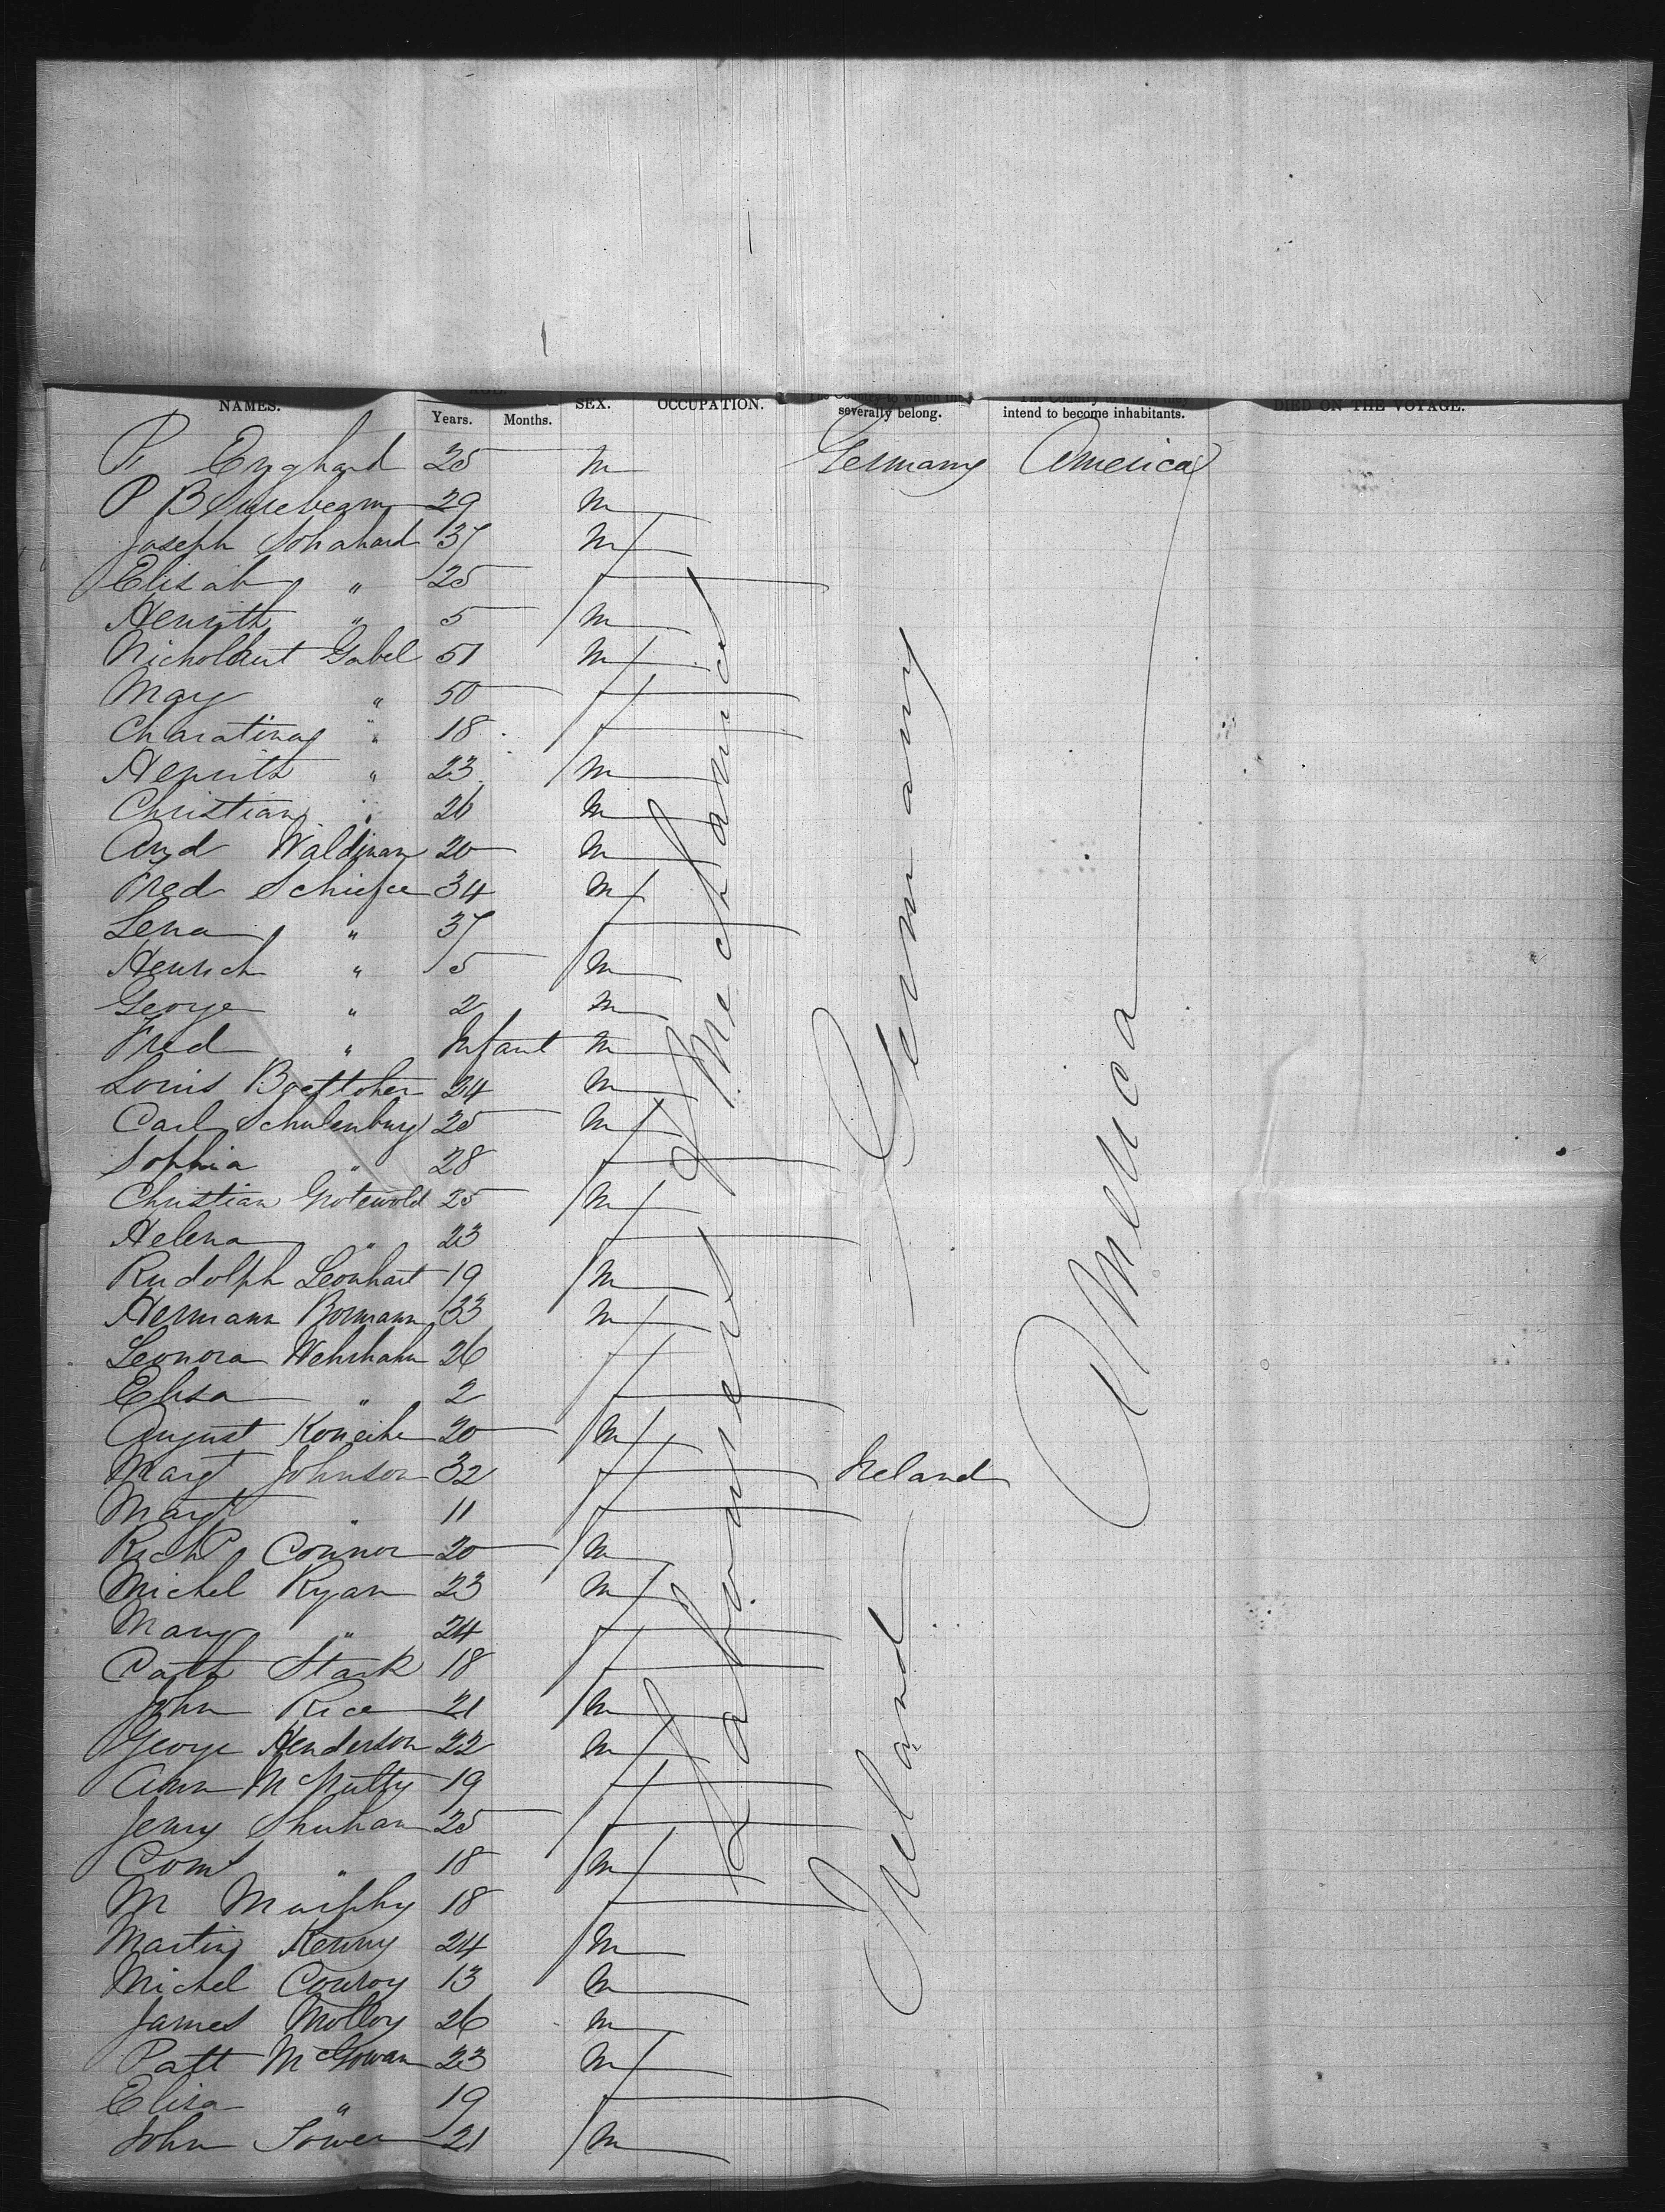 NAMES. AGE. Years. Months. SEX. OCCUPATION. The Country to which they severally belong. The Country to which they intend to become inhabitants. DIED ON THE VOYAGE.
Enghard 25 m Germany America
P 29 m
Joseph 37 m
Elisab " 25 f
" 5 m
Gabel 51 m
May " 50 f
" 18 f
" 23 m
Christian " 26 m
And Waldman 20 m
Fred 34 m
Lena " 37 f
Henrich " 5 m
George " 2 m
Fred " Infant m
Louis Boettcher 24 m
Carl Schulenburg 25 m
Sophia " 28 f
Christian Grotewold 25 m
Helena " 23 f
Rudolph Leonhart 19 m
Hermann Bormann 33 m
Leonora Wehrhahn 26 f
Elisa " 2 f
August 20 m
Margt Johnson 32 f Ireland
Margt " 11 f
Richd Connor 20 m
Michel Ryan 23 m
Mary " 24 f
Cath Stark 18 f
John Rice 21 m
George Henderson 22 m
Ann McNulty 19 f
Jenny 25 f
" 18 m
M Murphy 18 f
Martin Kenny 24 m
Michel Conroy 13 m
James Molloy 26 m
Patt McGowan 23 m
Elisa " 19 f
John Tower 21 m
Labourers & Mechanics
Germany
Ireland
America